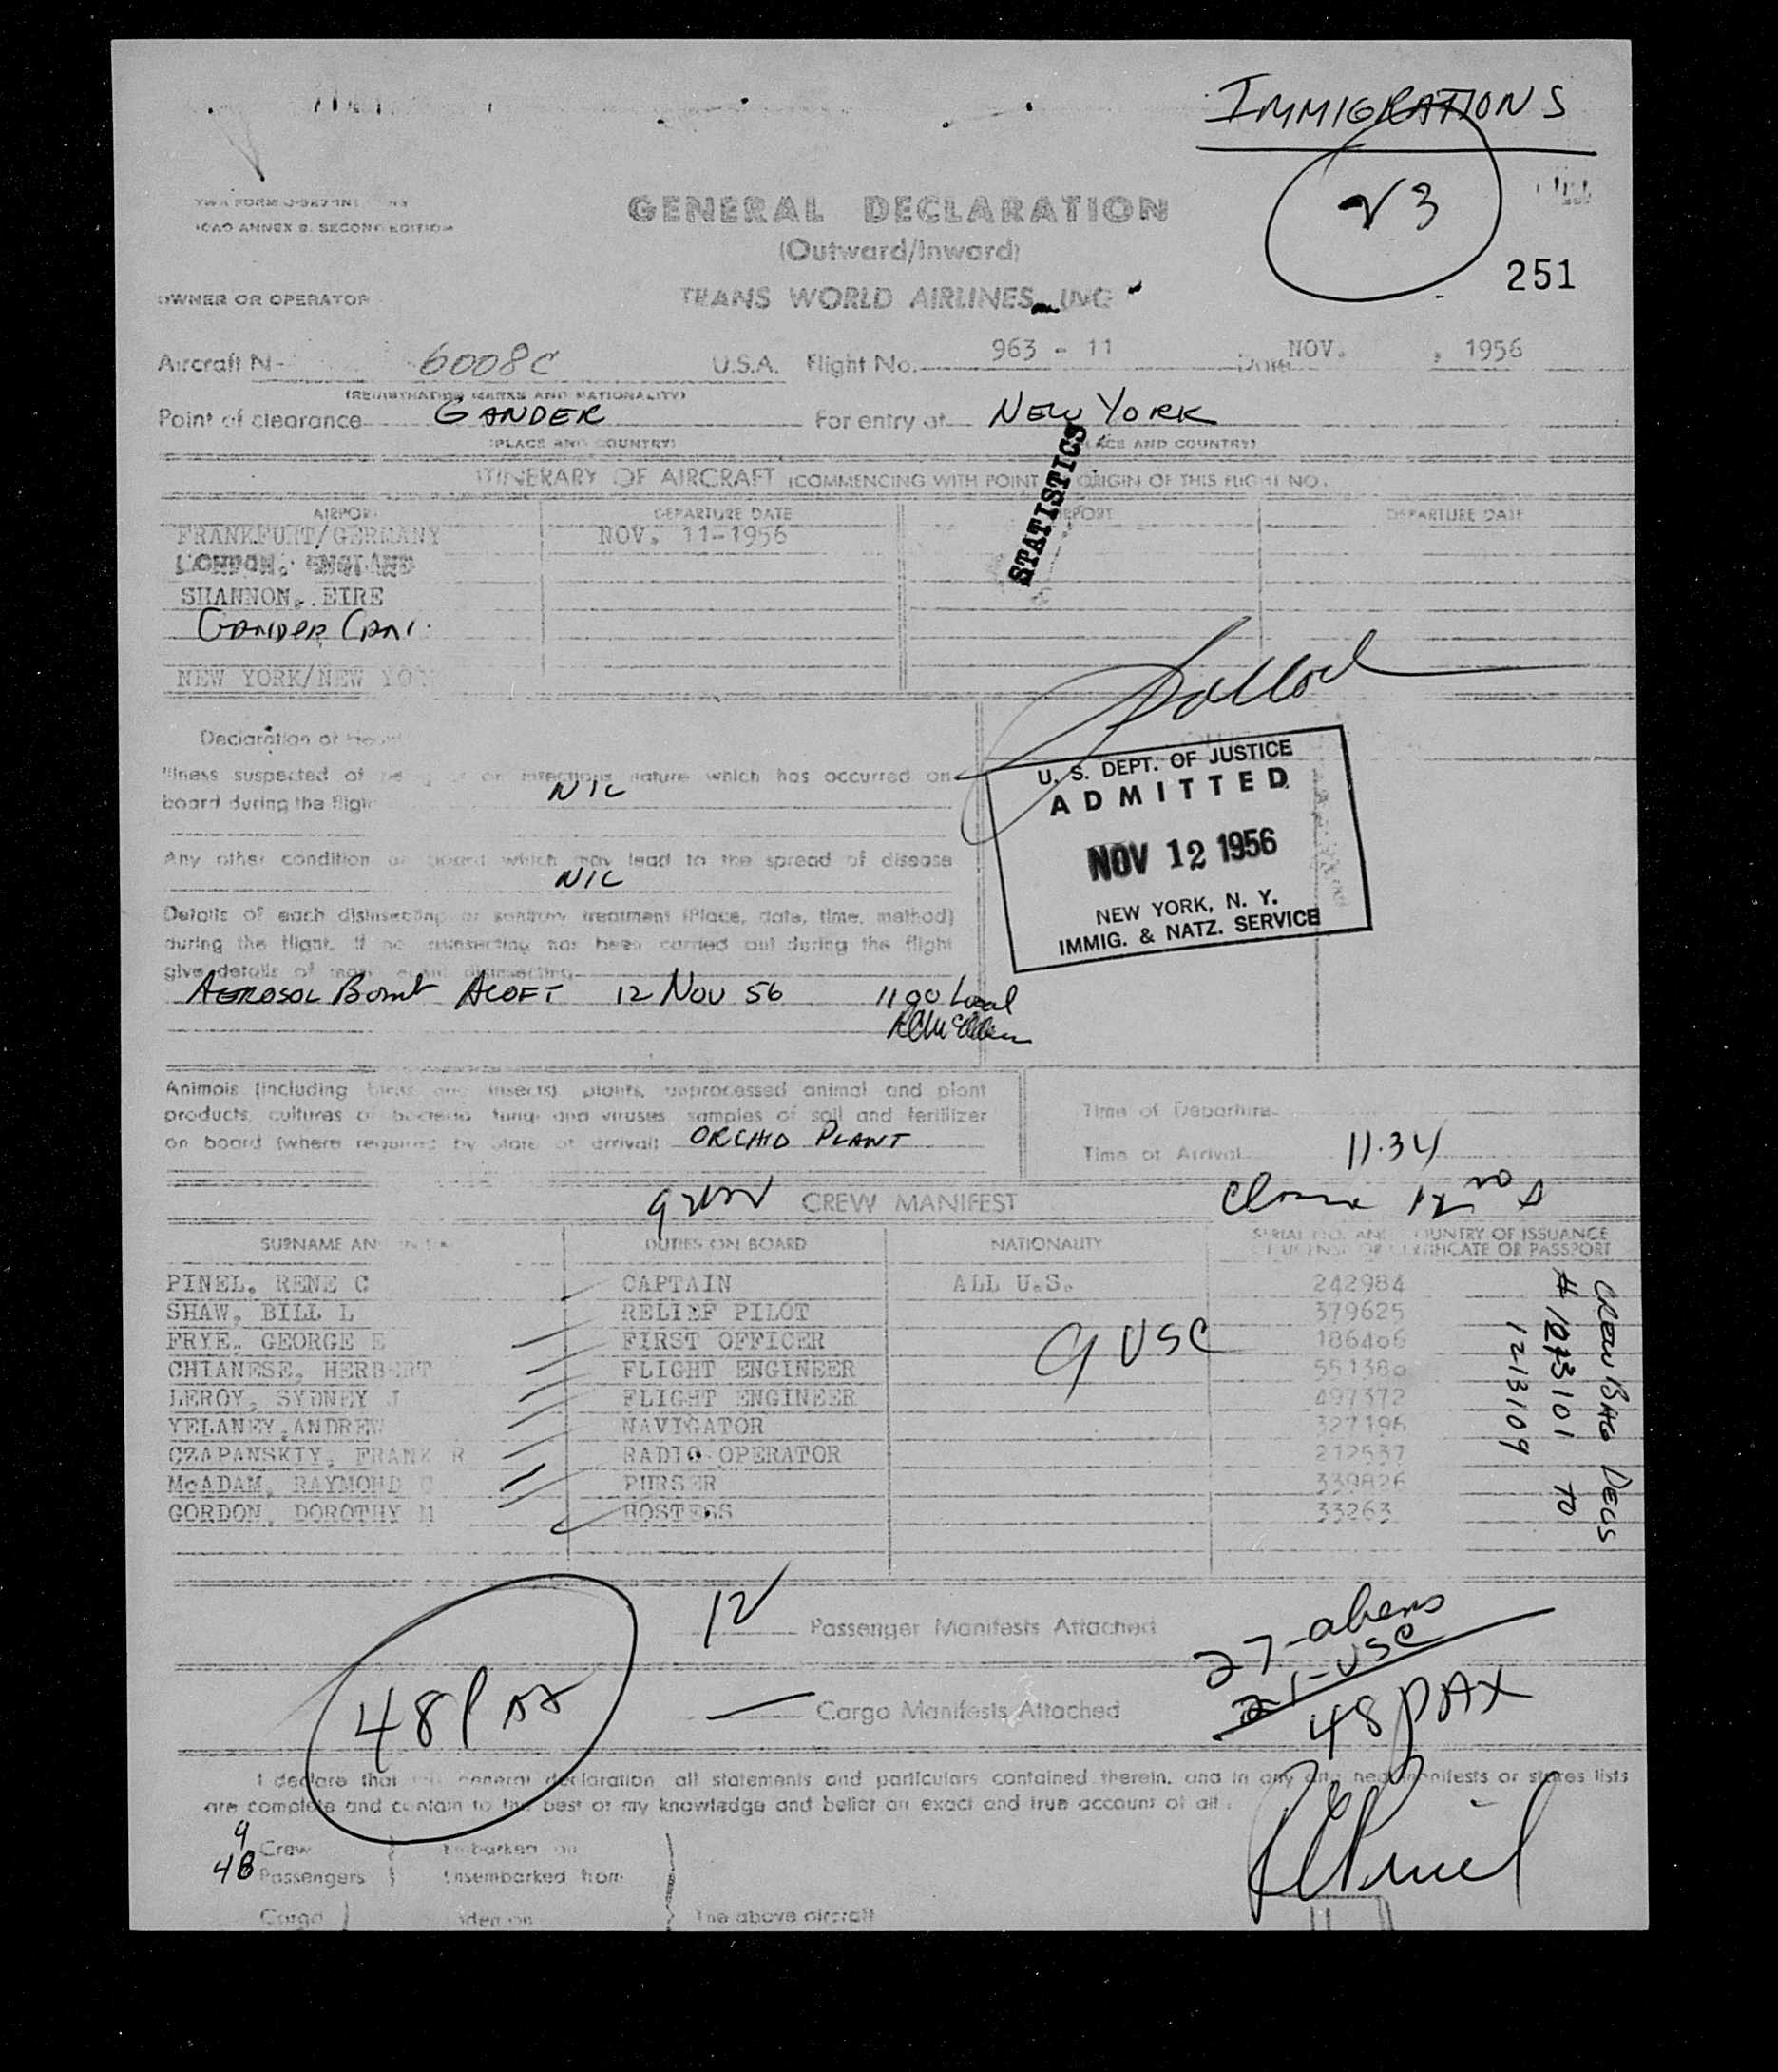 IMMIGRATIONS
23
TWA FORM
ICAO ANNEX 9. SECOND EDITION
GENERAL DECLARATION
(Outward/Inward)
251
OWNER OR OPERATOR
TRANS WORLD AIRLINES, INC
Aircraft N- 6008C U.S.A. Flight No. 963 - 11 Date NOV. , 1956
(REGISTRATION MARKS AND NATIONALITY)
Point of clearance GANDER For entry at NEW YORK
(PLACE AND COUNTRY) (PLACE AND COUNTRY)
STATISTICS
ITINERARY OF AIRCRAFT (COMMENCING WITH POINT ORIGIN OF THIS FLIGHT NO.
AIRPORT DEPARTURE DATE AIRPORT DEPARTURE DATE
FRANKFURT/GERMANY NOV. 11-1956
LONDON, ENGLAND
SHANNON, EIRE
GANDER CAN.
NEW YORK/NEW YO
Declaration of Health
Illness suspected of being of an infectious nature which has occurred on
board during the flight NIL
Any other condition on board which may lead to the spread of disease
NIL
Details of each disinsecting or sanitary treatment (Place, date, time, method)
during the flight. If no disinsecting has been carried out during the flight
give details of most recent disinsecting
AEROSOL BOMB ALOFT 12 NOV 56 1100 Local
U. S. DEPT. OF JUSTICE
ADMITTED
NOV 12 1956
NEW YORK, N. Y.
IMMIG. & NATZ. SERVICE
Animals (including birds and insects) plants, unprocessed animal and plant
products, cultures of bacteria fungi and viruses samples of soil and fertilizer
on board (where required by state of arrival) ORCHID PLANT
Time of Departure
Time of Arrival 11.34
CREW MANIFEST
SURNAME AND DUTIES ON BOARD NATIONALITY SERIAL NO. AND COUNTRY OF ISSUANCE
OF LICENSE OR CERTIFICATE OR PASSPORT
PINEL, RENE C CAPTAIN ALL U.S. 242984
SHAW, BILL L RELIEF PILOT 379625
FRYE, GEORGE E FIRST OFFICER 186406
CHIANESE, HERBERT FLIGHT ENGINEER 551380
LEROY, SYDNEY J FLIGHT ENGINEER 497372
YELANEY, ANDREW NAVIGATOR 327196
CZAPANSKIY, FRANK R RADIO OPERATOR 212537
McADAM, RAYMOND C PURSER 339826
GORDON, DOROTHY M HOSTESS 33263
9 USC
CREW BAG DECS
# 1213101 TO
1213109
12 Passenger Manifests Attached
48 Pax
Cargo Manifests Attached
27-aliens
21-USC
48 PAX
I declare that general declaration all statements and particulars contained therein, and in any manifests or stores lists
are complete and contain to the best of my knowledge and belief an exact and true account of all
9 Crew Embarked on
48 Passengers Disembarked from
Cargo laden on the above aircraft